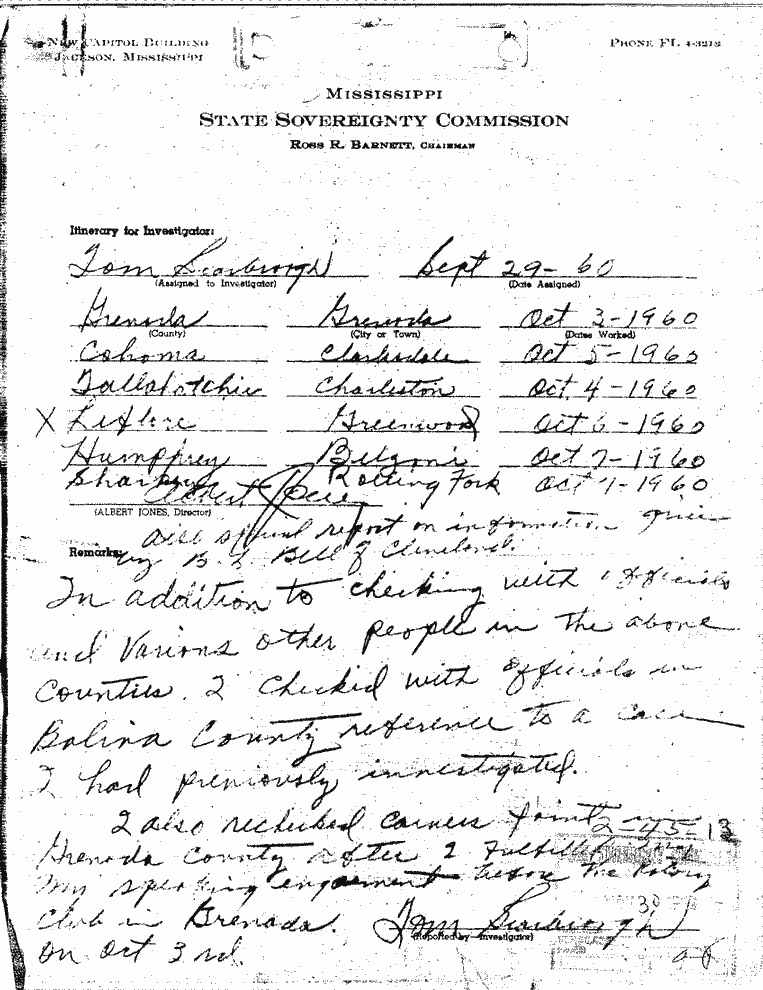 New Capitol Building
Jackson, Mississippi
Phone FL 4-3218
Mississippi
State Sovereignty Commission
Ross R. Barnett, Chairman
Itinerary for Investigator:
Tom Scarbrough Sept 29- 60
(Assigned to Investigator) (Date Assigned)
Grenada Grenada Oct 3-1960
(County) (City or Town) (Dates Worked)
Cohoma Clarksdale Oct 5-1960
Tallahatchie Charleston Oct 4-1960
X Leflore Greenwood Oct 6-1960
Humphrey Belzoni Oct 7-1960
Sharkey Rolling Fork Oct 7-1960
Albert Jones
(ALBERT JONES, Director)
Also special report on information given
Remarks: by B. L. Bell of Cleveland.
In addition to checking with officials
and Various other people in the above
Counties. I checked with officials in
Bolivar County reference to a case
I had previously investigated.
I also rechecked Joint in
2-45-13
Grenada County after I Fulfilled
my speaking engagement before the Rotary
Club in Grenada.
30
Tom Scarbrough
(Reported by—Investigator)
On Oct 3rd.